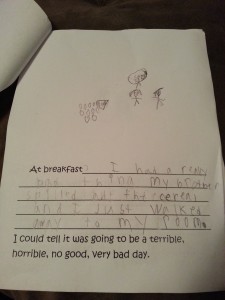 At breakfast I had a really
bad thing my brother
spilled all the cereal
and I just walked
away to my room
I could tell it was going to be a terrible,
horrible, no good, very bad day.